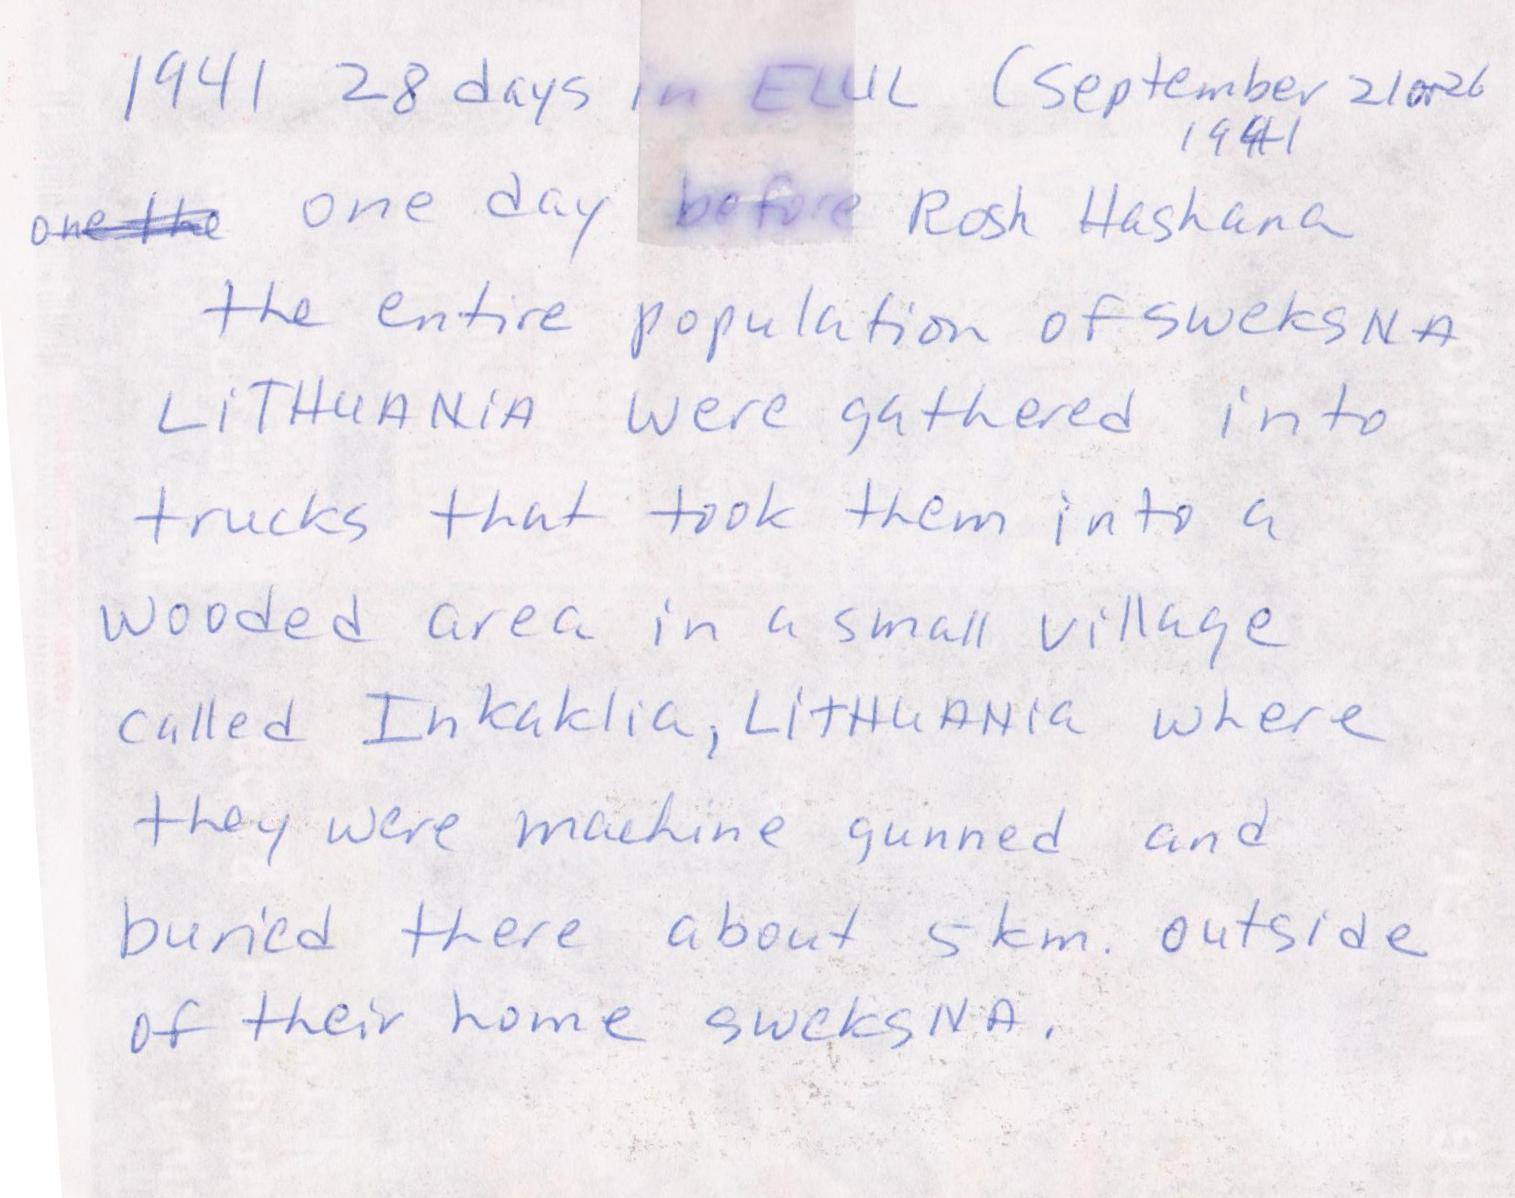 1941 28 days in ELUL (September 21 or 26
1941
one the one day before Rosh Hashana
the entire population of sweksNA
LiTHUANiA were gathered into
trucks that took them into a
wooded area in a small village
called Inkaklia, LiTHUANia where
they were machine gunned and
buried there about 5 km. outside
of their home sweksNA.